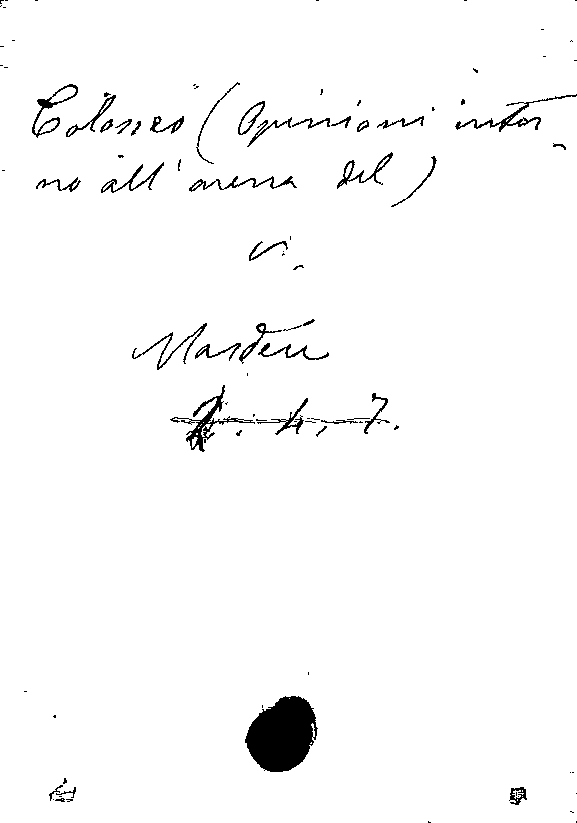 Colosseo (Opinioni intor-
no all'arena del)
vi.
Masdeu
4. 7.